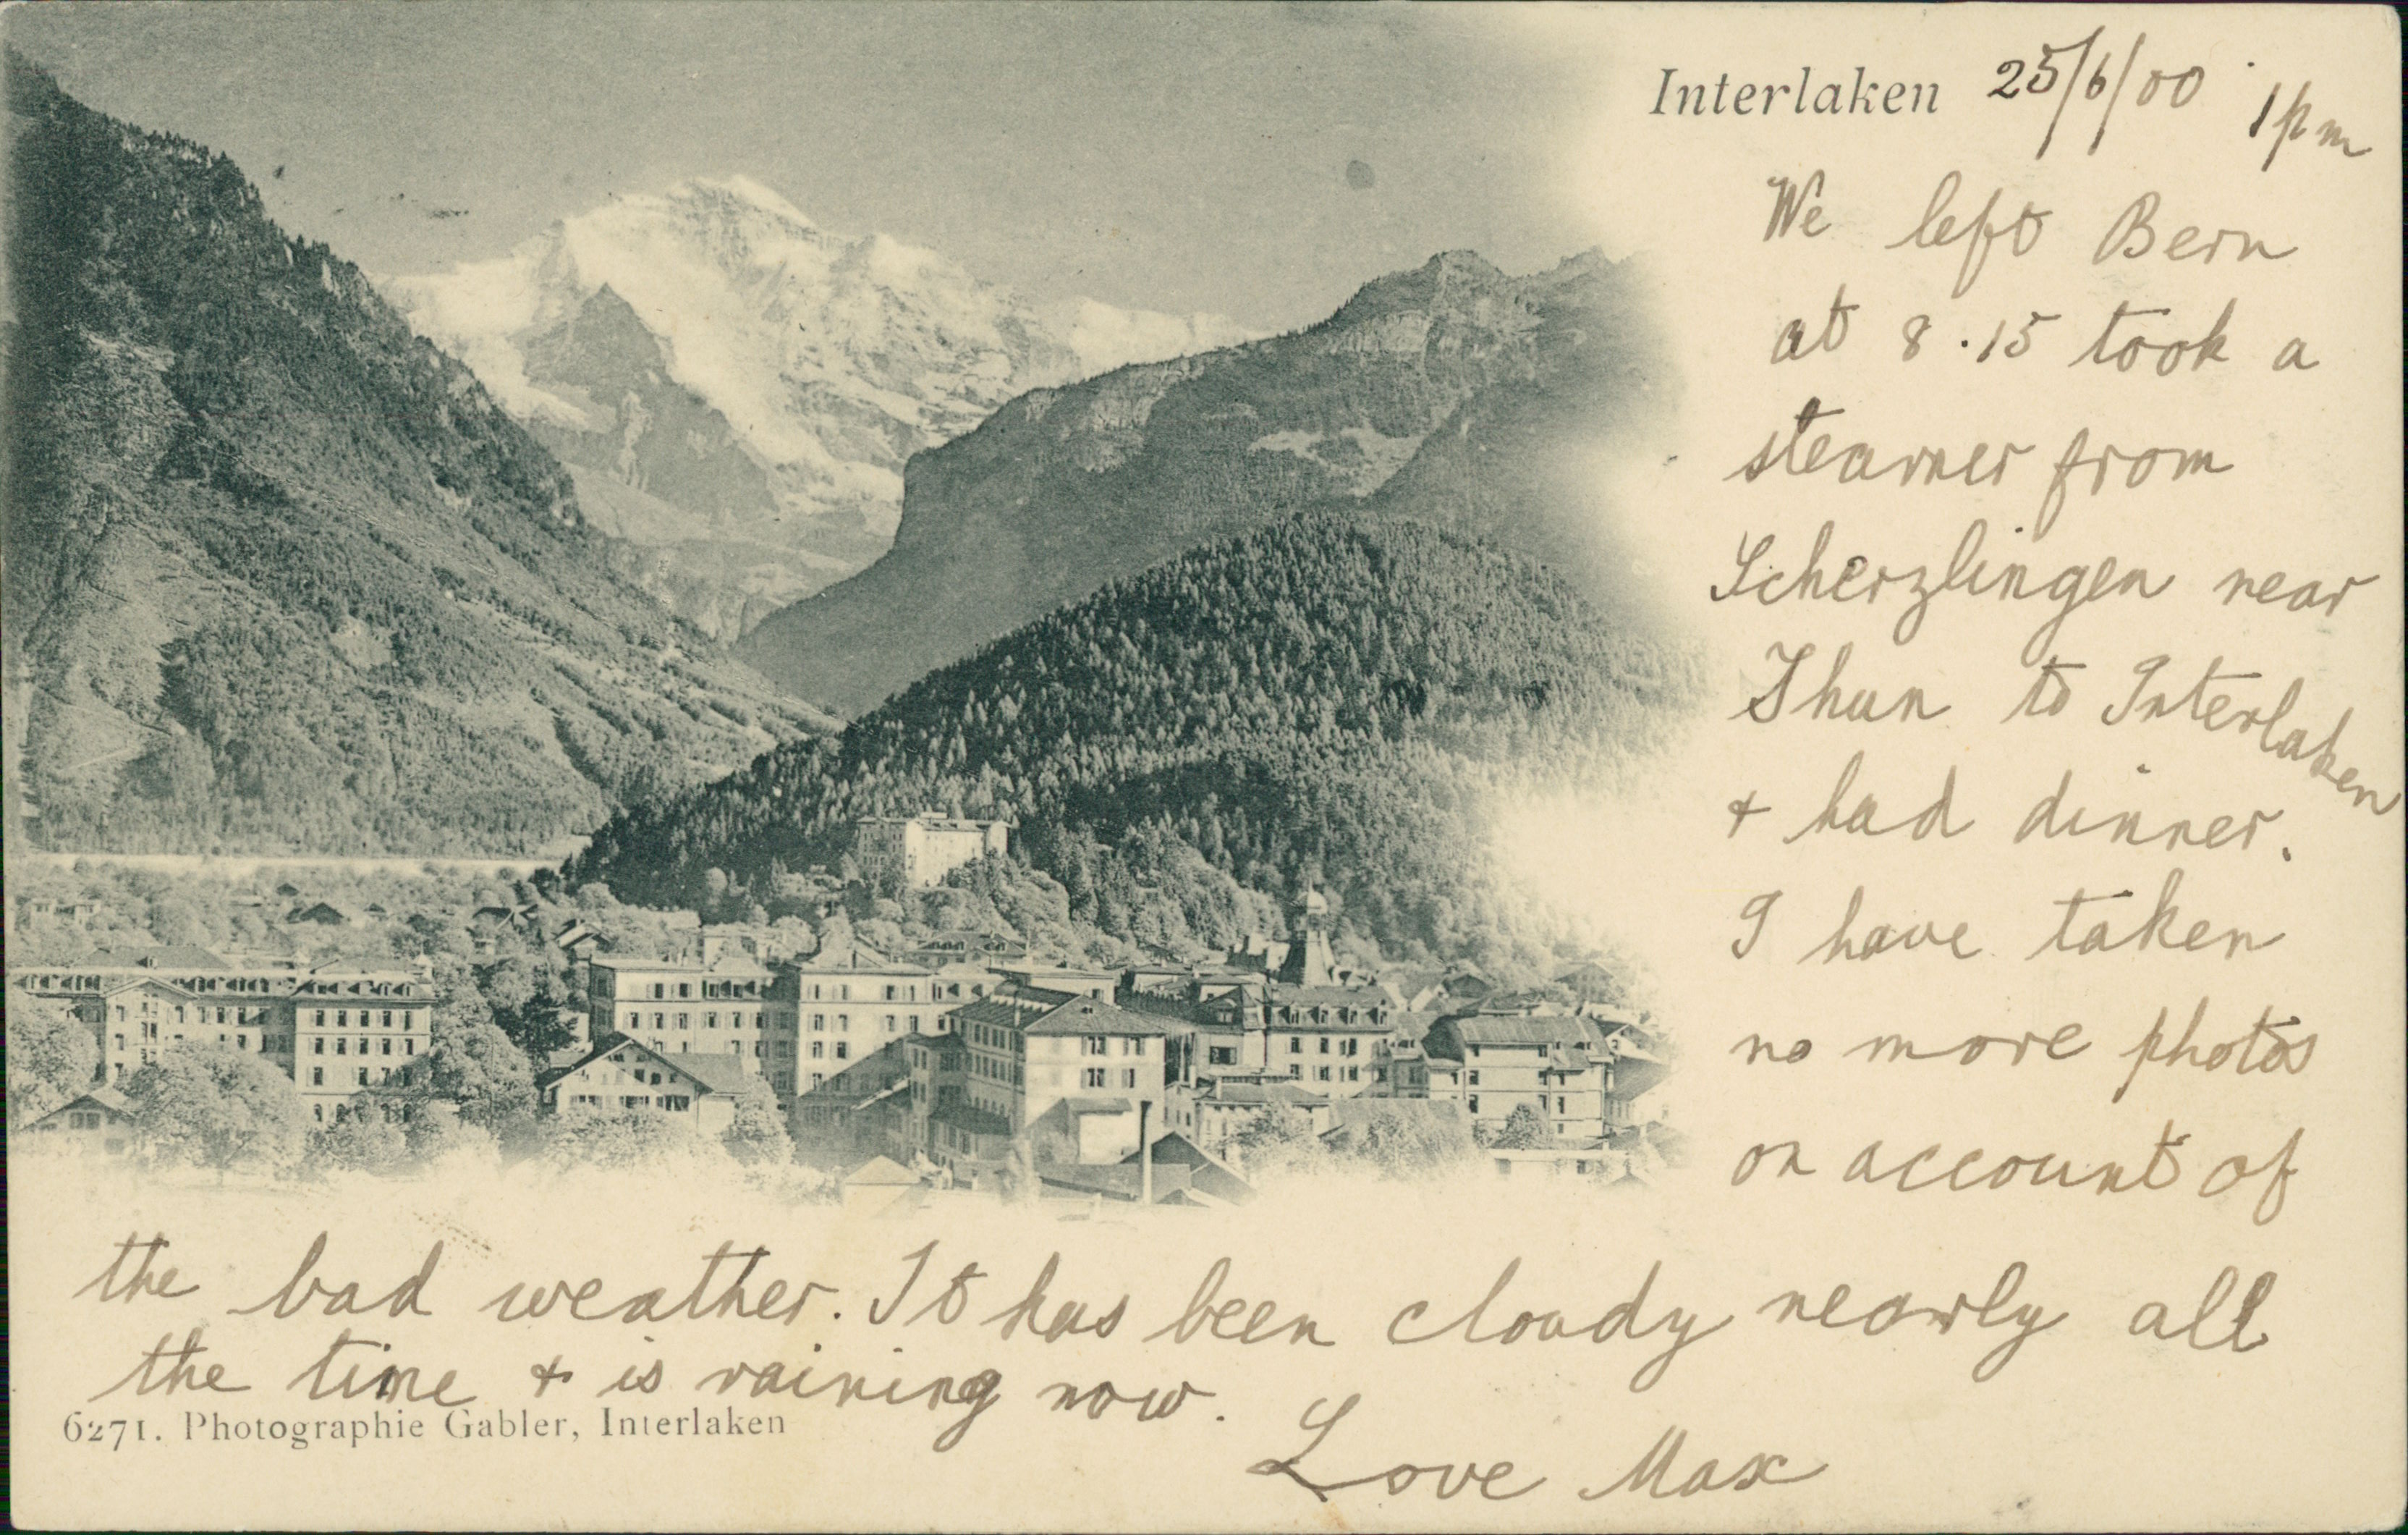 Interlaken 25/6/00 1 pm
We left Bern
at 8.15 took a
steamer from
Scherzlingen near
Thun to Interlaken
+ had dinner.
I have taken
no more photos
on account of
the bad weather. It has been cloudy nearly all
the time + is raining now.
6271. Photographie Gabler, Interlaken
Love Max